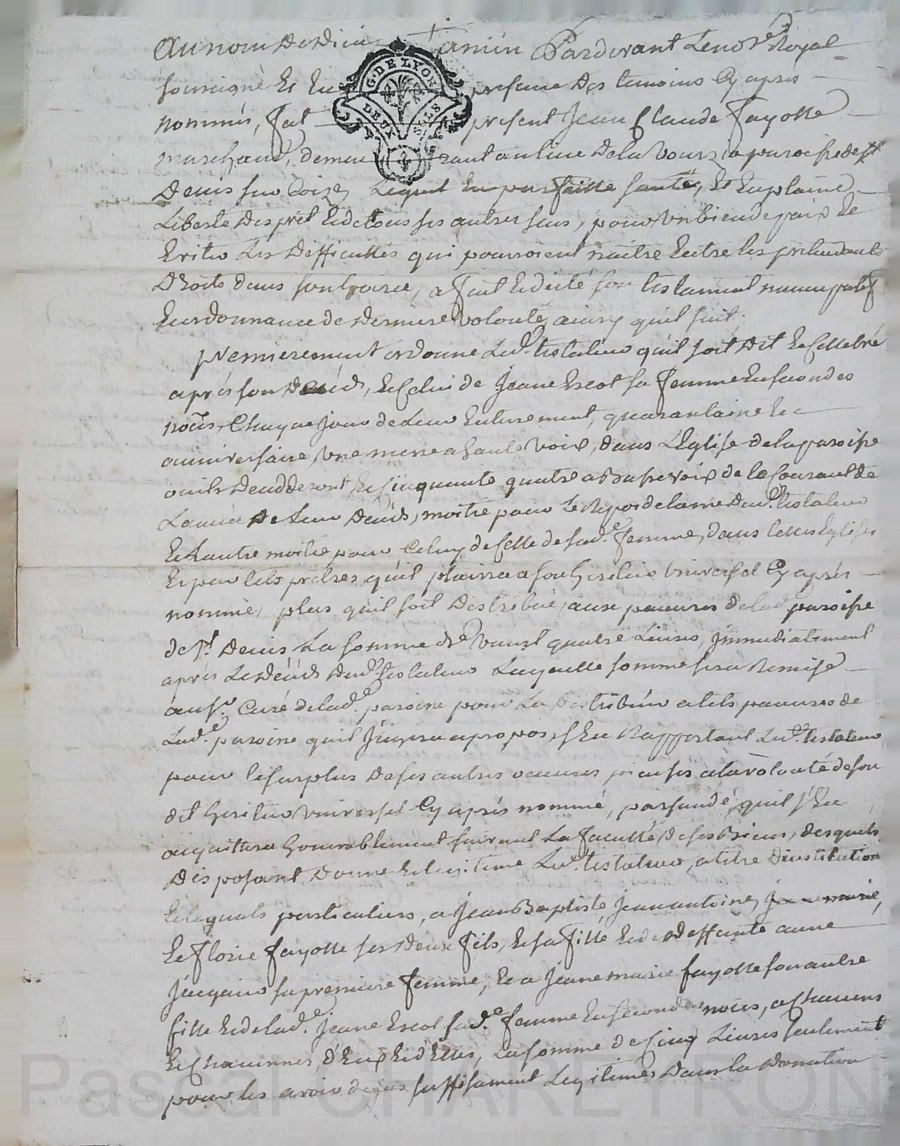 Au nom De Dieu amin Pardevant Le no.re Royal
G. DE LYON
DEUX SOLS
soussigné Et En presence Des temoins Cy après
nommés, fut present Jean Claude Fayotte
marchand, demeurant au lieu De la Vours la paroisse de st
Denis sur Coize, Lequel En parfaitte santé, Et En plaine
Liberté desprit Et de tous ses autres sens, pour Un bien de paix Et
Eviter Les Difficultés qui pourroient naitre Entre les pretendants
Droits dans son hoirie, a fait Et dicté son testament nuncupatif
Et ordonnance de Derniere volonté, ainsy quil suit.
premierement ordonne Led. testateur quil soit Dit Et cellebré
après son Decéds, Et Celui de Jeane Escot sa femme En secondes
nôces, Chaque jour de Leur Enterrement, quarantaine Et
anniversaire, Une messe a haute voix, dans L'Eglise de la paroisse
ou ils Deccdderont, Et Cinquante quatre a Basse voix de le Courant de
L'année De Leur Decéds, moitié pour Le Repos de lame Dud. testateur
Et L'autre moitié pour Celuy de Celle de sad.e femme, dans telles Eglises
Et par tels prêtres, quil plaira a son Heritier Universel Cy après
nommé, plus quil soit Distribué, aux pauvres de lad. paroisse
de St. Denis La somme de Vingt quatre Livres, immediatement
après Le Décéds Dud. testateur Laquelle somme sera Remise
au sr. Curé de lad.e paroisse pour La Distribuer a tels pauvres de
Lad.e paroisse quil Jugera apropos, sEn Rapportant Led. testateur
pour le surplus De ses autres oeuvres pieuses a la volonté de son
dit Heritier Universel Cy après nommé, persuadé, quil s'En
acquittera honorablement suivant La faculté, de ses Biens, desquels
Disposant Donne Et Legue Led. testateur, a titre D'institution
Et legats particuliers, a Jean Baptiste, Jean antoine, Jeane marie,
Et Florie fayotte ses Deux fils, Et sa fille Et de Deffunte anne
Jacquin sa premiere femme, Et a Jeane marie fayotte son autre
fille Et de lad.e Jeane Escot sad.e femme En secondes noces, a Chacuns
Et Chacunnes, d'Eux Et d'Elles, La somme de Cinq Livres seulement
pour les avoir deja suffisament Legitimés Dans La Donation
Pascal CHAREYRON